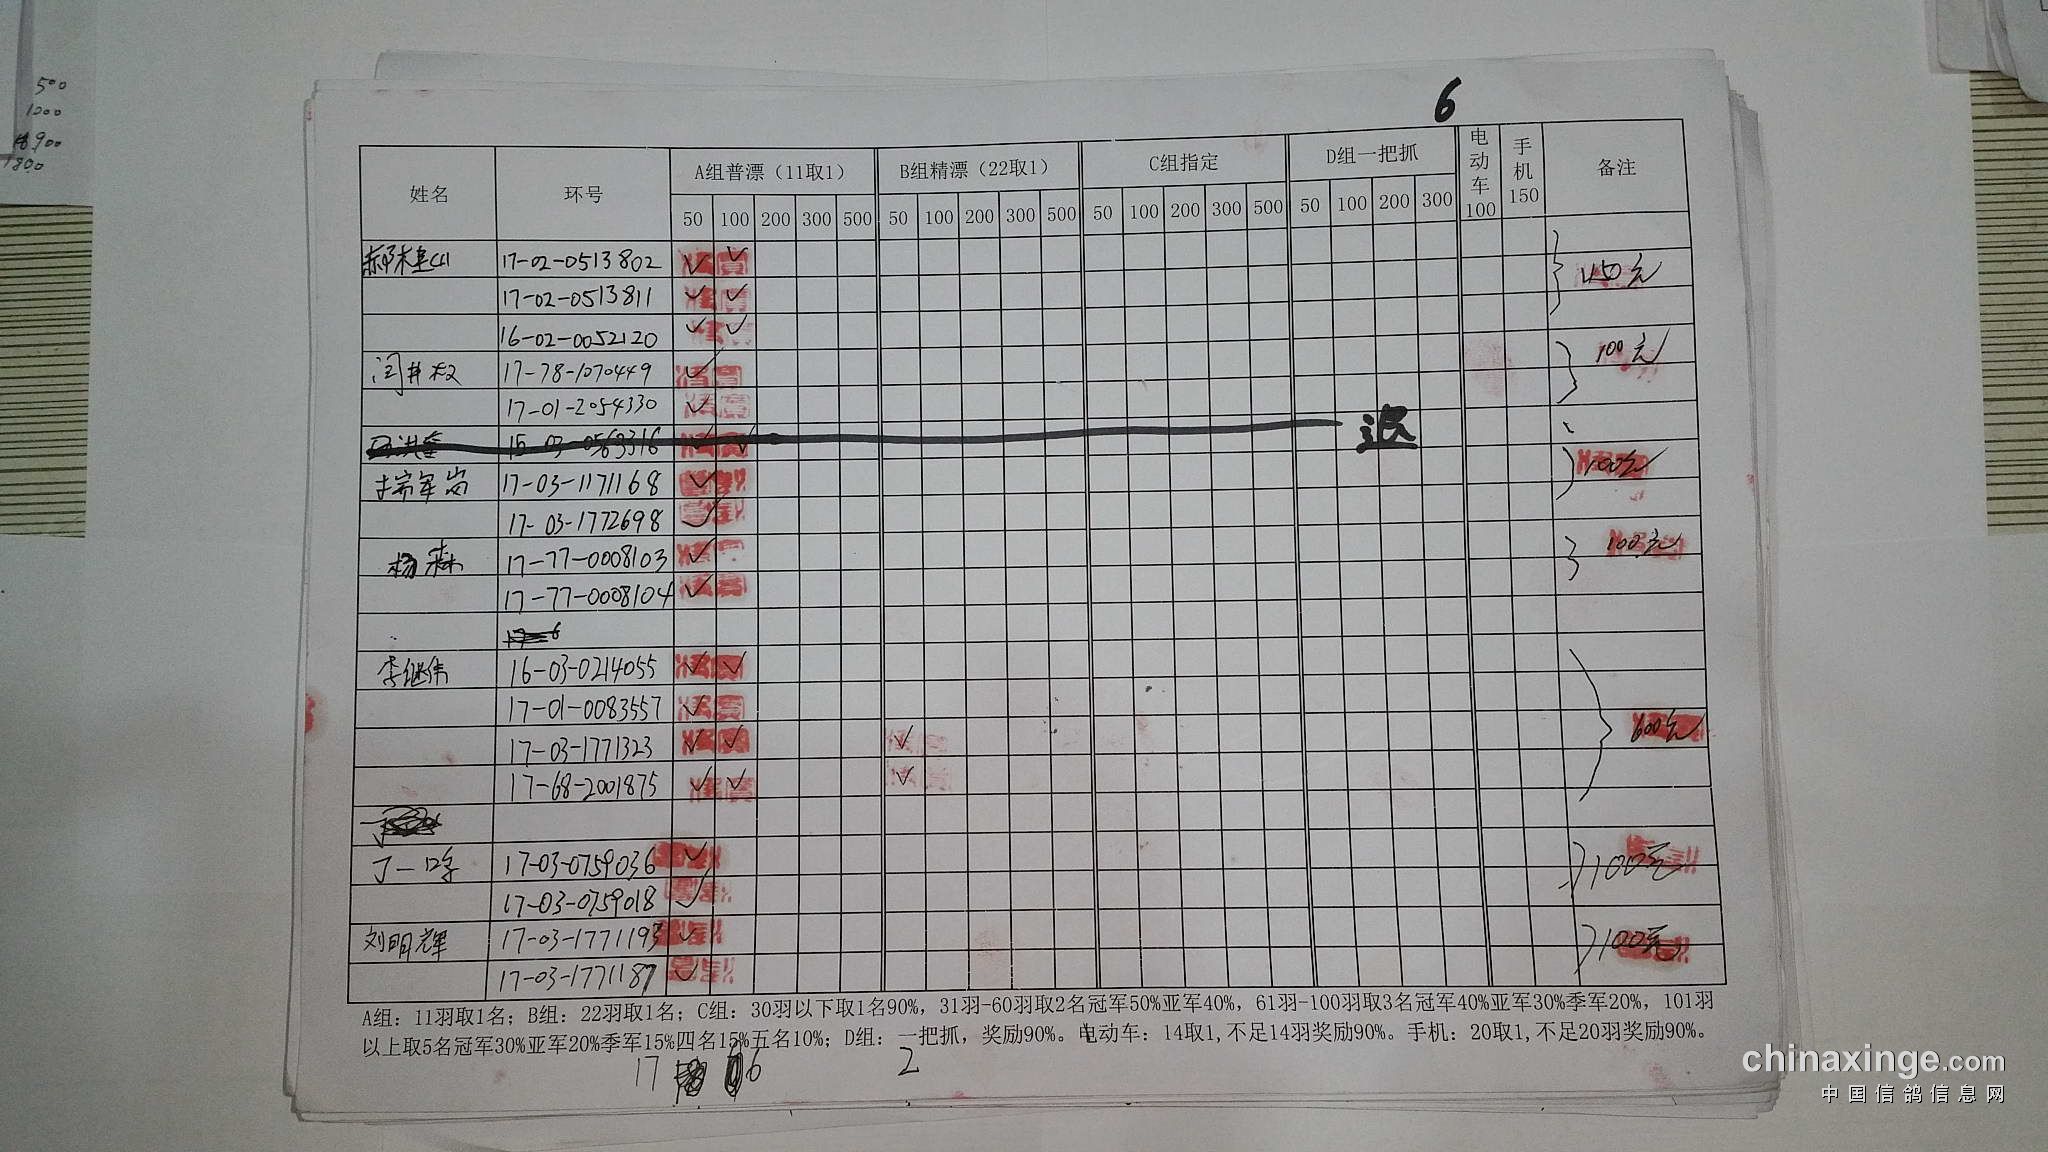 500
1000
1800
6
姓名 环号 A组普漂（11取1） B组精漂（22取1） C组指定 D组一把抓 电动车100 手机150 备注
50 100 200 300 500 50 100 200 300 500 50 100 200 300 500 50 100 200 300
17-02-0513802 ✓ ✓
17-02-0513811 ✓ ✓ 450元
16-02-0052120 ✓ ✓
17-78-1070449 ✓ 100元
17-01-2054330 ✓
15-03-0563316 ✓ ✓ 退
17-03-1171168 ✓ 100元
17-03-1772698 ✓
杨森 17-77-0008103 ✓ 100元
17-77-0008104 ✓
李继伟 16-03-0214055 ✓ ✓
17-01-0083557 ✓ 600元
17-03-1771323 ✓ ✓ ✓
17-68-2001875 ✓ ✓ ✓
17-03-0759036 ✓ 100元
17-03-0759018 ✓
刘明辉 17-03-1771193 ✓ 100元
17-03-1771187 ✓
A组：11羽取1名；B组：22羽取1名；C组：30羽以下取1名90%，31羽-60羽取2名冠军50%亚军40%，61羽-100羽取3名冠军40%亚军30%季军20%，101羽
以上取5名冠军30%亚军20%季军15%四名15%五名10%；D组：一把抓，奖励90%。电动车：14取1,不足14羽奖励90%。手机：20取1,不足20羽奖励90%。
17 6 2
chinaxinge.com
中国信鸽信息网